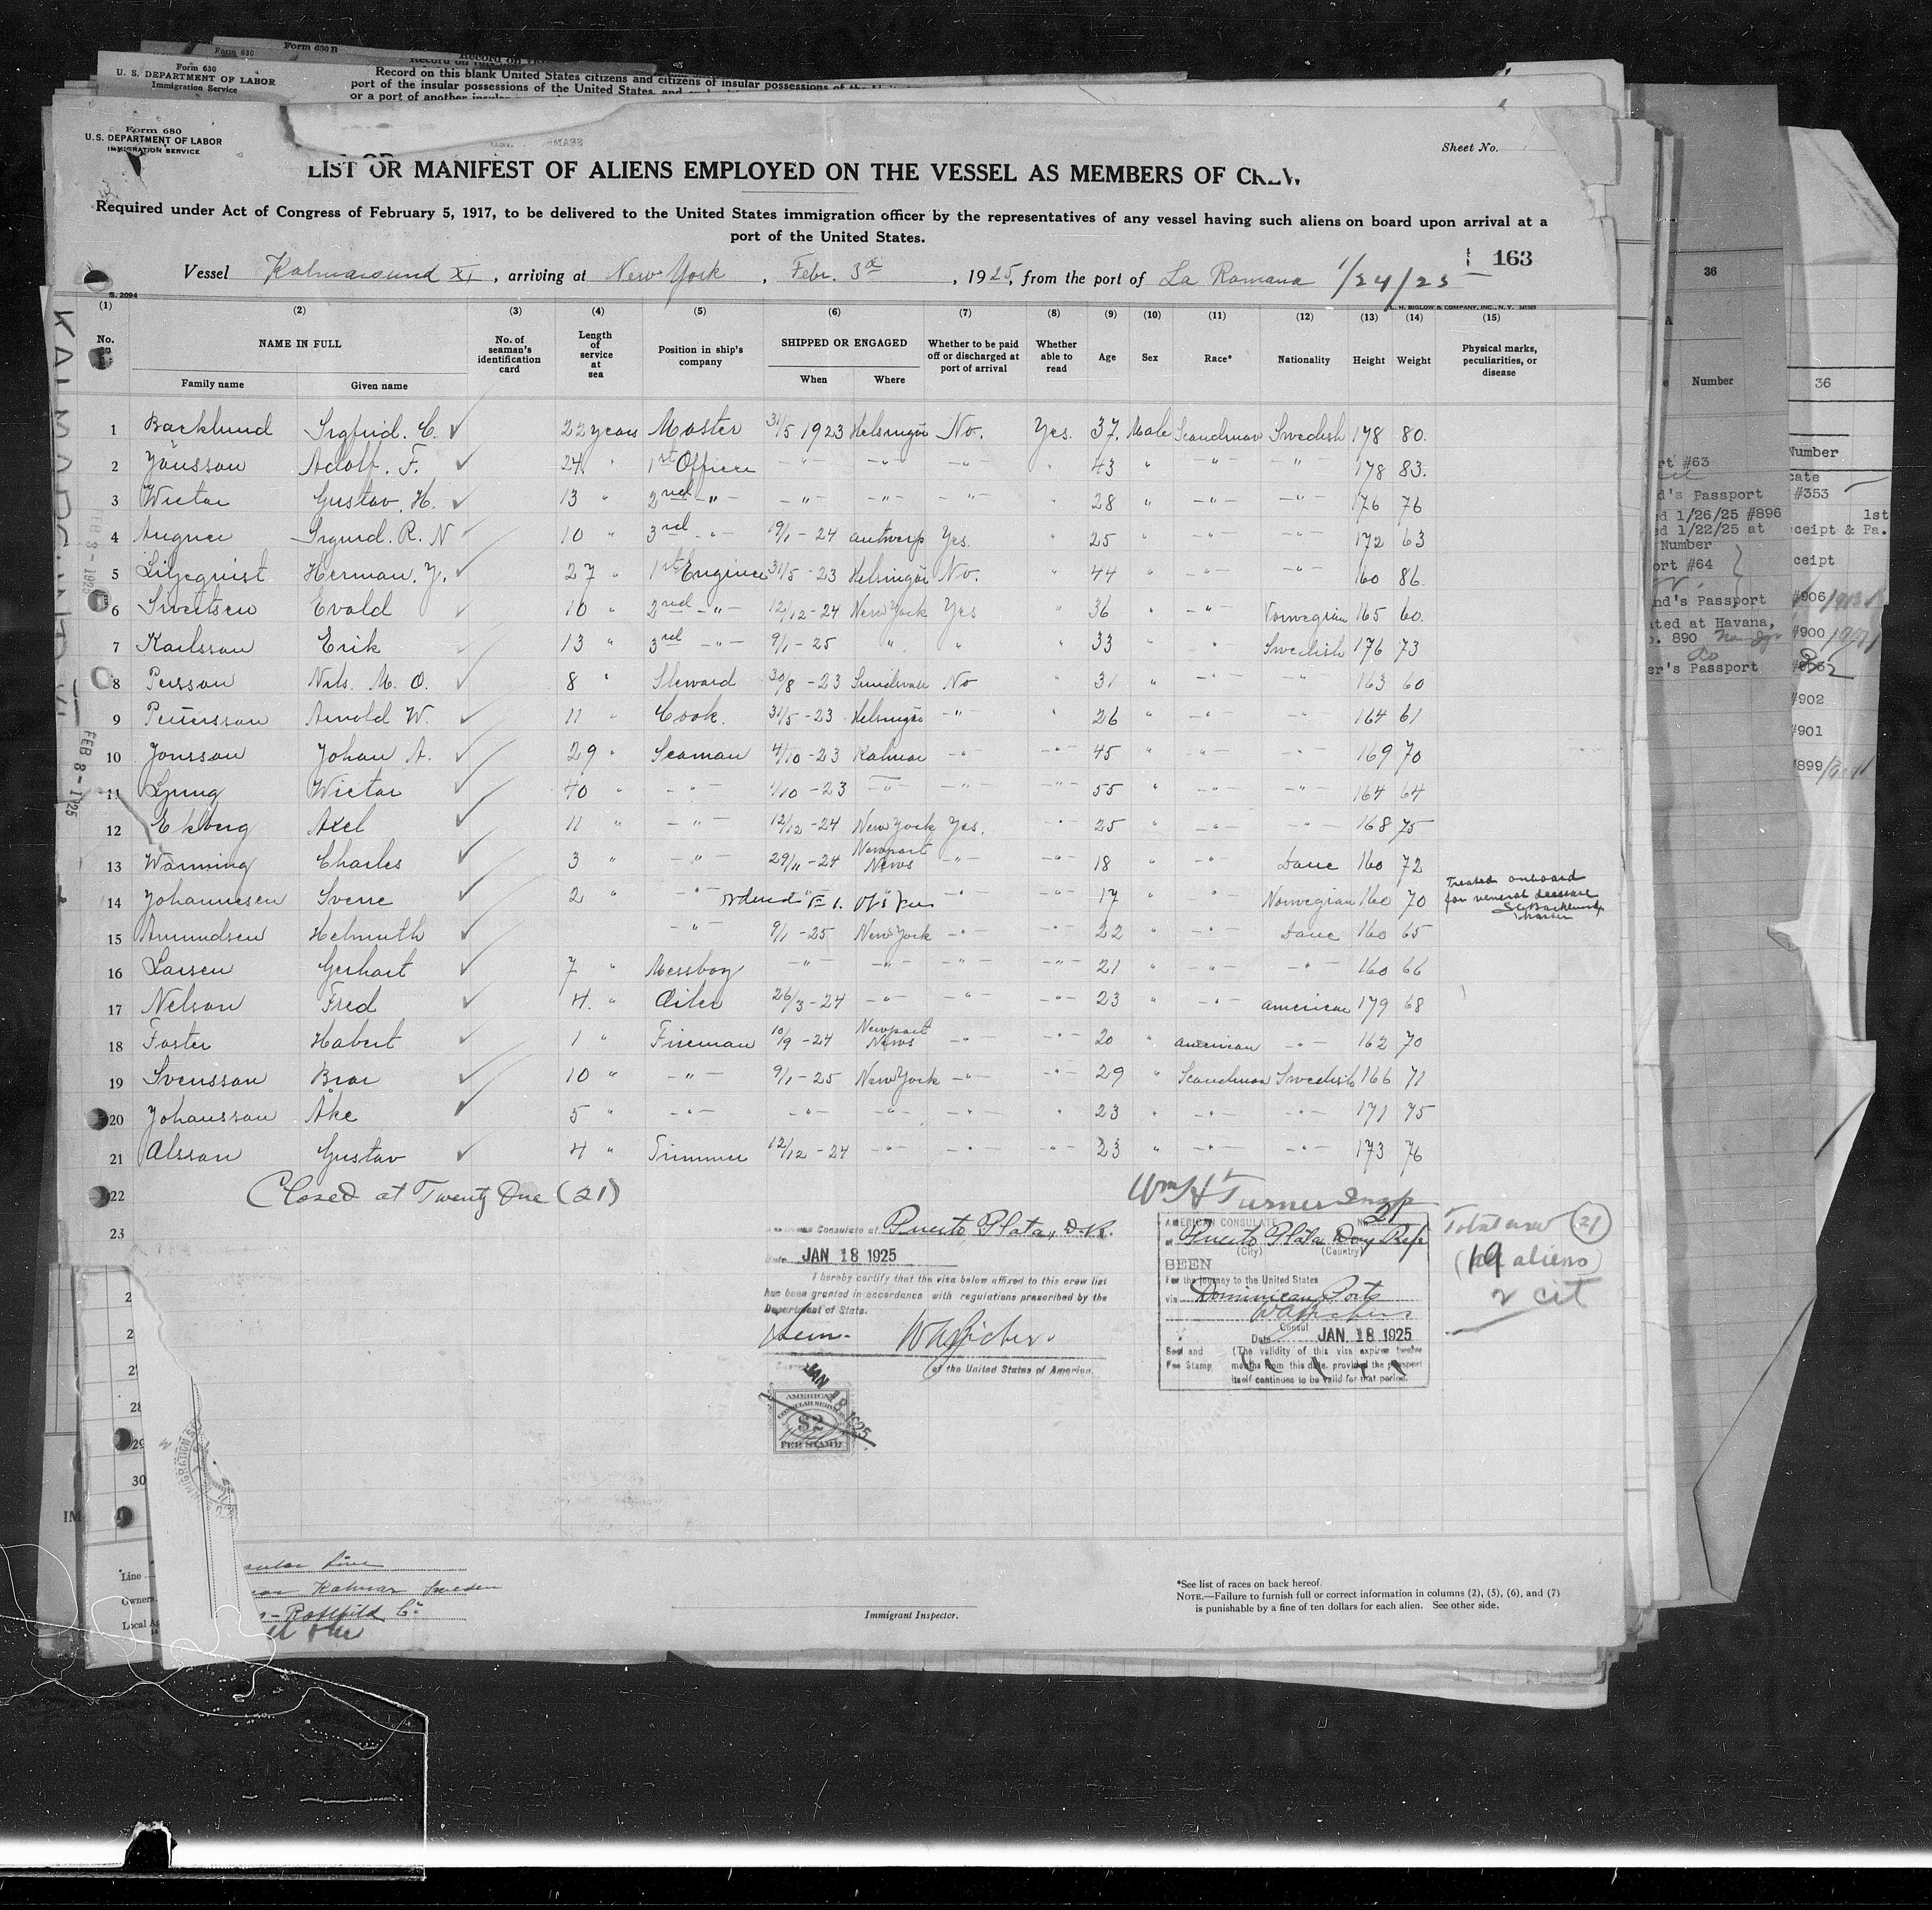 Form 630 B
Form 630
Form 630
U. S. DEPARTMENT OF LABOR
Immigration Service
Record on this blank United States citizens and citizens of insular possessions of the
port of the insular possessions of the United States, and
or a port of another insular
Form 680
U.S. DEPARTMENT OF LABOR
IMMIGRATION SERVICE
Sheet No.
LIST OR MANIFEST OF ALIENS EMPLOYED ON THE VESSEL AS MEMBERS OF CREW
Required under Act of Congress of February 5, 1917, to be delivered to the United States immigration officer by the representatives of any vessel having such aliens on board upon arrival at a
port of the United States.
163
Vessel Kalmarsund XI, arriving at New York, Febr. 3d, 1925, from the port of La Romana 1/24/25
S. 2094
L. H. BIGLOW & COMPANY, INC., N. Y.
(1) (2) (3) (4) (5) (6) (7) (8) (9) (10) (11) (12) (13) (14) (15)
No. NAME IN FULL Family name Given name No. of seaman's identification card Length of service at sea Position in ship's company SHIPPED OR ENGAGED When Where Whether to be paid off or discharged at port of arrival Whether able to read Age Sex Race* Nationality Height Weight Physical marks, peculiarities, or disease
1 Backlund Sigfrid. C. ✓ 22 years Master 31/5 1923 Helsingör No. Yes. 37. Male Scandinav Swedish 178 80.
2 Jönsson Adolf. F. ✓ 24 " 1st Officer -"- -"- -"- " 43 " -"- -"- 178 83.
3 Wictor Gustav. H. ✓ 13 " 2nd -"- -"- -"- -"- 28 " -"- -"- 176 76
4 Sigurd. R. N ✓ 10 " 3rd -"- 19/1 - 24 Antwerp Yes. " 25 " -"- -"- 172 63
5 Liljeqvist Herman. J. ✓ 27 " 1st Engineer 31/5 - 23 Helsingör No. " 44 " -"- -"- 160 86
6 Sivertsen Evald ✓ 10 " 2nd -"- 12/12 - 24 New York Yes " 36 " -"- Norwegian 165 60.
7 Karlsson Erik ✓ 13 " 3rd -"- 9/1 - 25 " " " 33 " " Swedish 176 73
8 Persson Nils. M. O. ✓ 8 " Steward 30/8 - 23 Sundsvall No " 31 " -"- -"- 163 60
9 Pettersson Arnold W. ✓ 11 " Cook. 31/5 - 23 Helsingör -"- " 26 " -"- -"- 164 61
10 Jonsson Johan A. ✓ 29 " Seaman 4/10 - 23 Kalmar -"- -"- 45 " -"- -"- 169 70
11 Ljung Wictor ✓ 40 " -"- 1/10 - 23 -"- -"- -"- 55 " -"- -"- 164 64
12 Ekberg Axel ✓ 11 " -"- 12/12 - 24 New York Yes. -"- 25 " -"- -"- 168 75
13 Warming Charles ✓ 3 " -"- 29/11 - 24 Newport News -"- -"- 18 " -"- Dane 160 72
14 Johannesen Sverre ✓ 2 " -"- -"- -"- 17 " " Norwegian 160 70 Treated onboard for veneral desease SC Backlund Master
15 Amundsen Helmuth ✓ -"- 9/1 - 25 New York -"- -"- 22 " -"- Dane 160 65
16 Larsen Gerhart ✓ 7 " Messboy -"- -"- -"- -"- 21 " -"- -"- 160 66
17 Nelson Fred ✓ 4. " Oiler 26/3 - 24 -"- -"- -"- 23 " -"- American 179 68
18 Foster Hobert ✓ 1 " Fireman 10/9 - 24 Newport News -"- -"- 20 " American -"- 162 70
19 Svensson Bror ✓ 10 " -"- 9/1 - 25 New York -"- -"- 29 " Scandinav Swedish 166 71
20 Johansson Åke ✓ 5 " -"- -"- -"- -"- -"- 23 " -"- -"- 171 75
21 Olsson Gustav ✓ 4 " Trimmer 12/12 - 24 -"- -"- " 23 " -"- -"- 173 76
22 Closed at Twenty One (21) Wm H Turner Insp
23
Consulate at Puerto Plata, D.R.
Date JAN 18 1925
I hereby certify that the visa below affixed to this crew list
has been granted in accordance with regulations prescribed by the
Department of State.
of the United States of America.
JAN 18 1925
AMERICAN
CONSULAR SERVICE
$2
FEE STAMP
AMERICAN CONSULATE No. 21
at Puerto Plata Dom Rep
(City) (Country)
SEEN
For the journey to the United States
via Dominican Ports
Consul
Date JAN 18 1925
Seal and Fee Stamp
(The validity of this visa expires twelve
months from this date, provided the passport
itself continues to be valid for that period.
Total crew (21)
(19 aliens)
2 cit
28
29
30
KALMARSUND XI
FEB 3 - 1925
FEB 8 - 1925
Line
Owners Kalmar Sweden
Local
Immigrant Inspector.
*See list of races on back hereof.
NOTE.—Failure to furnish full or correct information in columns (2), (5), (6), and (7)
is punishable by a fine of ten dollars for each alien. See other side.
36
Number
36
Number
#63
d's Passport
#353
1/26/25 #896
1/22/25 at
1st
ceipt & Pa.
Number
ort #64
ceipt
nd's Passport
#906
ated at Havana,
890
#900
er's Passport
#902
#901
#899